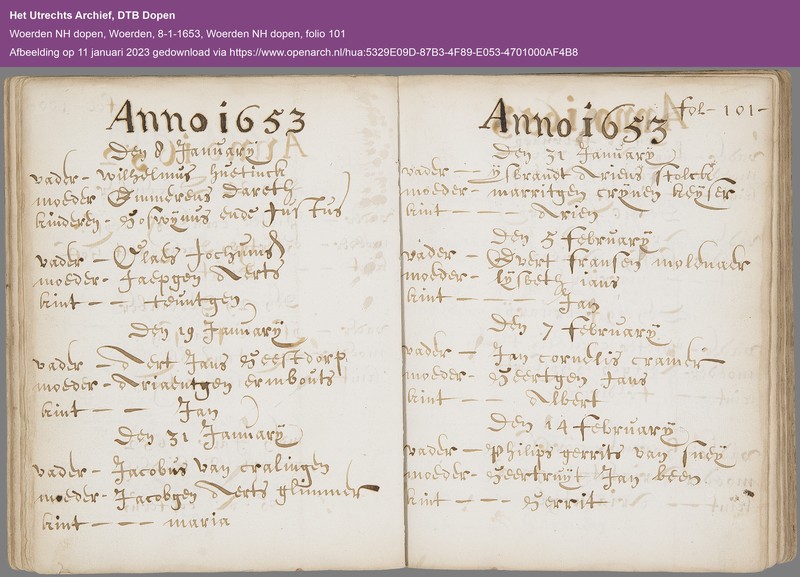 Het Utrechts Archief, DTB Dopen
Woerden NH dopen, Woerden, 8-1-1653, Woerden NH dopen, folio 101
Afbeelding op 11 januari 2023 gedownload via https://www.openarch.nl/hua:5329E09D-87B3-4F89-E053-4701000AF4B8
Anno 1653
Den 8 Januarÿ
vader - wilhelmus huetinck
moeder Emmerens Dareth
kinderen - Goswÿnus ende Justus
vader - Claes Jochums
moeder - Jaepgen Aerts
kint - - teuntgen
Den 19 Januarÿ
vader - Aert Jans Geestdorp
moeder - Ariaentgen ermbouts
kint - - Jan
Den 31 Januarÿ
vader - Jacobus van cralingen
moeder - Jacobgen Aerts glimmer
kint - - maria
fol - 101 -
Anno 1653
Den 31 Januarÿ
vader - ÿsbrandt Ariens stolck
moeder - marritgen crÿnen keÿser
kint - - Arien
Den 5 februarÿ
vader - Evert fransen molenaer
moeder - lÿsbeth jans
kint - - Jan
Den 7 februarÿ
vader - Jan cornelis cramer
moeder - Geertgen Jans
kint - - Albert
Den 14 februarÿ
vader - Philips gerrits van sueÿ
moeder - Geertruÿt Jan been
kint - - Gerrit